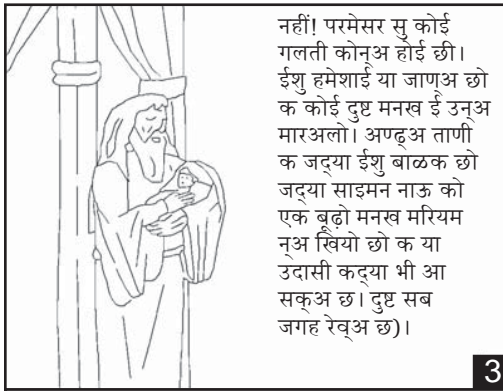 नहीं! परमेसर सु कोई
गलती कोन्अ होई छी।
ईशु हमेशाई या जाण्अ छो
क कोई दुष्ट मनख ई उन्अ
मारअलो। अण्ढ्अ ताणी
क जद्‌या ईशु बाळक छो
जद्‌या साइमन नाऊ को
एक बूढ़ो मनख मरियम
न्अ खियो छो क या
उदासी कद्‌या भी आ
सक्अ छ। दुष्ट सब
जगह रेव्अ छ)।
3